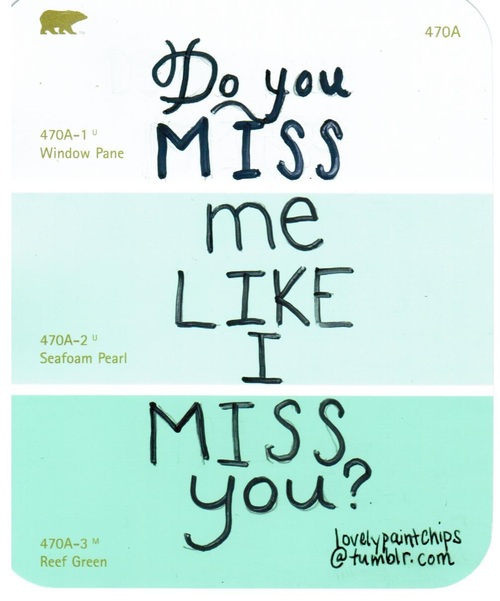 470A
Do you
MISS
470A-1 U
Window Pane
me
LIKE
I
470A-2 U
Seafoam Pearl
MISS
you?
470A-3 M
Reef Green
lovelypaintchips
@tumblr.com